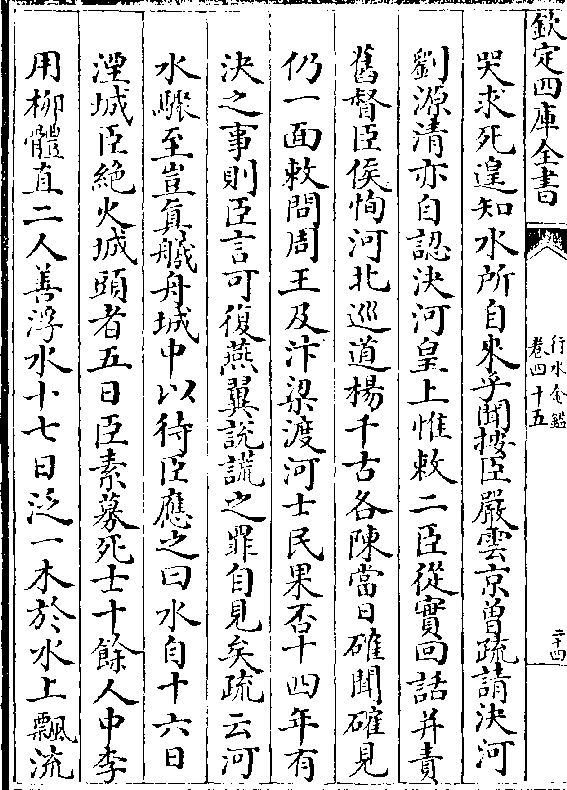 欽定四庫全書
行水金鑑
卷四十五
二十四
哭求死遑知水所自來乎聞按臣嚴雲京曾疏請決河
劉源清亦自認決河皇上惟敕二臣從實回話并責
舊督臣侯恂河北巡道楊千古各陳當日確聞確見
仍一面敕問周王及汴梁渡河士民果否十四年有
決之事則臣言可復燕翼說謊之罪自見矣疏云河
水驟至豈真艤舟城中以待臣應之曰水自十六日
湮城臣絕火城頭者五日臣素募死士十餘人中李
用柳體直二人善浮水十七日泛一木於水上飄流